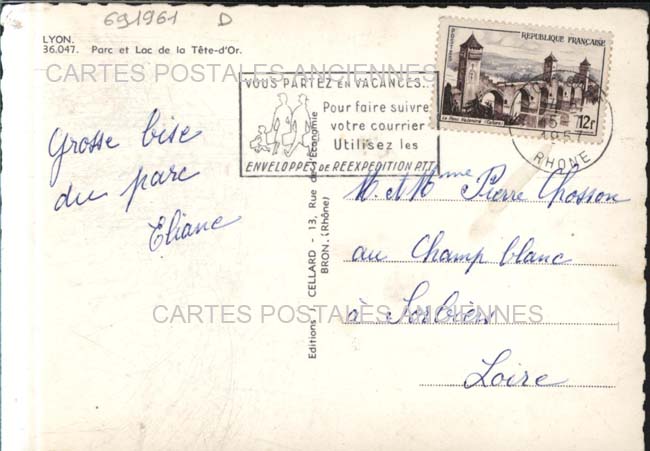 691961 D
LYON.
36.047. Parc et Lac de la Tête-d'Or.
CARTES POSTALES ANCIENNES
VOUS PARTEZ EN VACANCES..
Pour faire suivre
votre courrier
Utilisez les
ENVELOPPES DE REEXPEDITION PTT
REPUBLIQUE FRANÇAISE
POSTES
Le Pont Valentré (Cahors)
12F
1957
RHONE
Grosse bise
du parc
Eliane
Editions CELLARD - 13, Rue de l'Economie
BRON. (Rhône)
M. et Mme Pierre Chosson
au Champ blanc
à Sorbiers
Loire
CARTES POSTALES ANCIENNES